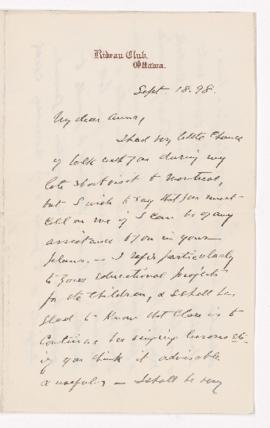 Rideau Club,
Ottawa.
Sept. 18. 98.
My dear Anne,
I had very little chance
of talk with you during my
late short visit to Montreal,
but I wish to say that you must
call on me if I can be of any
assistance to you in your
plans. — I refer particularly
to your educational projects
for the children, & I shall be
glad to know that Clare is to
continue her singing lessons
if you think it advisable
& useful — I shall be very